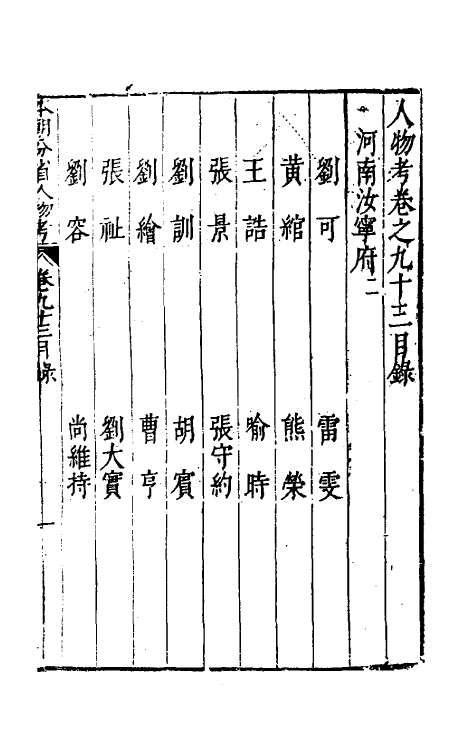 人物考卷之九十三目錄
河南汝寧府二
劉可 雷雯
黃綰 熊榮
王誥 喻時
張景 張守約
劉訓 胡賓
劉繪 曹亨
張祉 劉大實
劉容 尚維持
本朝分省人物考 卷九十三目錄 一